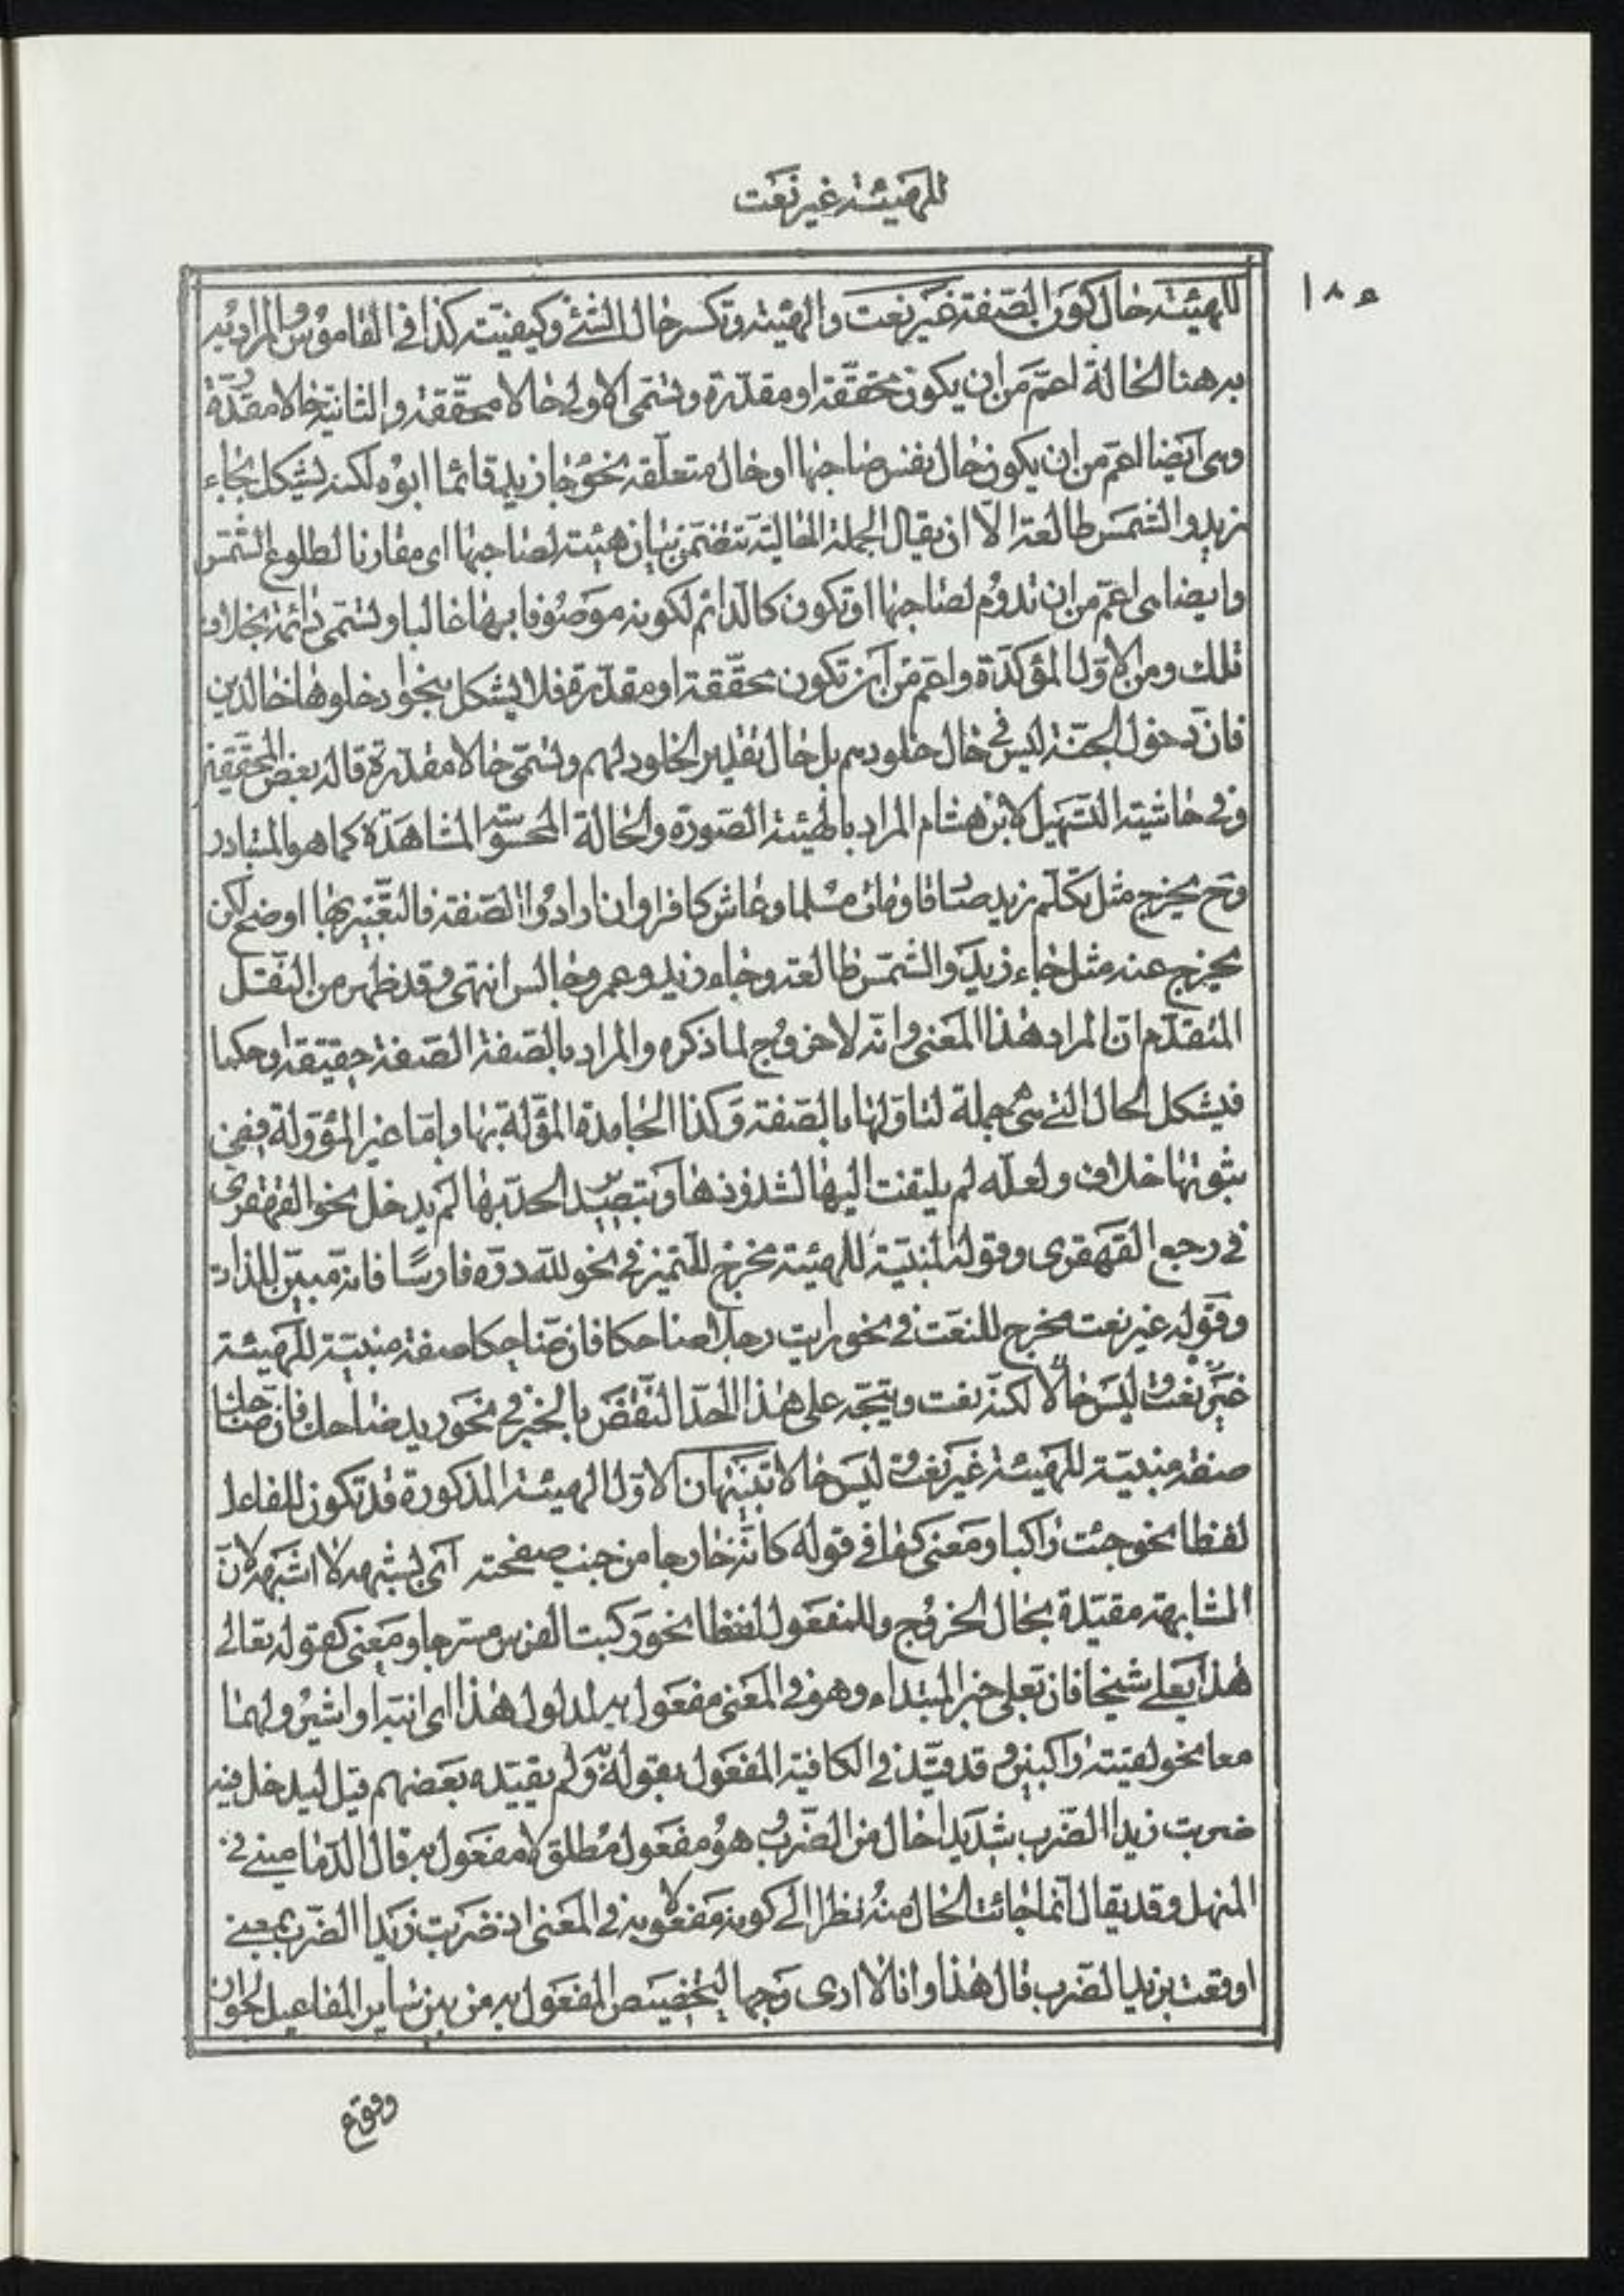 للهيئة غير نعت
١٨٥
للهيئة حال كون الصفة غير نعت والهيئة وتكسر حال الشئ وكيفيته كذا فى القاموس والمراد به
به هنا الحالة اعمّ من ان يكون محققة او مقدّرة وتسمى الاولى حالا محقّقة والثانية حالا مقدّرة
وهى ايضا اعمّ من ان يكون حال نفس صاحبها او حال متعلّقه نحو جا زيد قائما ابوه لكنه يشكل بجاء
زيد والشمس طالعة الّا ان يقال الجملة الحالية تتضمّن بيان هيئة لصاحبها اى مقارنا لطلوع الشمس
وايضا هى اعمّ من ان تدوم لصاحبها او تكون كالدائم لكونه موصوفا بها غالبا وتسمى دائمة بخلاف
تلك ومن الاول المؤكدة واعمّ من ان تكون محقّقة او مقدّرة فلا يشكل بنحو ادخلوها خالدين
فانّ دخول الجنّة ليس فى حال خلودهم بل حال تقدير الخلود لهم وتسمّى حالا مقدّرة قاله بعض المحققين
وفى حاشية التسهيل لابن هشام المراد بالهيئة الصورة والحالة المحسوسة المشاهدة كما هو المتبادر
وح يخرج مثل تكلّم زيد صادقا ومات مسلما وعاش كافرا وان ارادوا الصفة فالتعبير بها اوضح لكن
يخرج عنه مثل جاء زيد والشمس طالعة وجاء زيد وعمرو جالس انتهى وقد ظهر من النقل
المتقدّم انّ المراد هذا المعنى وانّه لا خروج لما ذكره والمراد بالصفة الصفة حقيقة او حكما
فيشكل الحال التى هى جملة لتاولها بالصفة وكذا الجامدة المؤلة بها وامّا غير المؤولة ففى
ثبوتها خلاف ولعله لم يلتفت اليها لشذوذها وبتصيّد الحدّ بها لم يدخل نحو القهقرى
فى رجع القهقرى وقوله المبنيّة للهيئة مخرج للتميز فى نحو لله درّه فارسًا فانه مبيّن للذات
وقوله غير نعت مخرج للنعت فى نحو رايت رجلا ضاحكا فان ضاحكا صفة مبنيّة للهيئة
غير نعت وليس حالًا لكنّه نعت ويتّجه على هذا الحدّ النقض بالخبر فى نحو زيد ضاحك فان ضاحك
صفة مبنيّة للهيئة غير نعت و ليس حالا تنبيهان الاول الهيئة المذكورة قد تكون للفاعل
لفظا نحو جئت راكبا ومعنى كما فى قوله كانّه خارجا من جنب صفحته اى يشبهه لا اشبهه لان
المشابهة مقيّدة بحال الخروج وللمفعول لفظا نحو ركبت الفرس مسرجا ومعنى كقوله تعالى
هذا بعلى شيخا فان بعلى خبر المبتداء وهو فى المعنى مفعول به لمدلول هذا اى انبّه او اشير ولهما
معا نحو لقيته راكبين وقد قيّد فى الكافية المفعول بقوله به ولم يقيّده بعضهم قيل ليدخل فيه
ضربت زيدا الضرب شديدا حال من الضرب وهو مفعول مطلق لا مفعول به قال الدّمامينى فى
المنهل وقد يقال انّما جائت الحال منه نظرا الى كونه مفعولا به فى المعنى اذ ضربت زيدا الضرب بمعنى
اوقعت بزيد الضرب قال هذا وانا لا ارى وجها لتخصيص المفعول به من بين ساير المفاعيل لجواز
وقوع